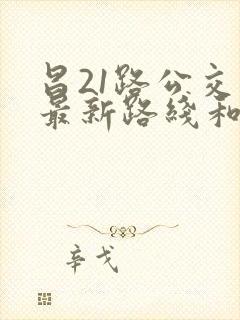 昌21路公交
最新路线和
辛戈